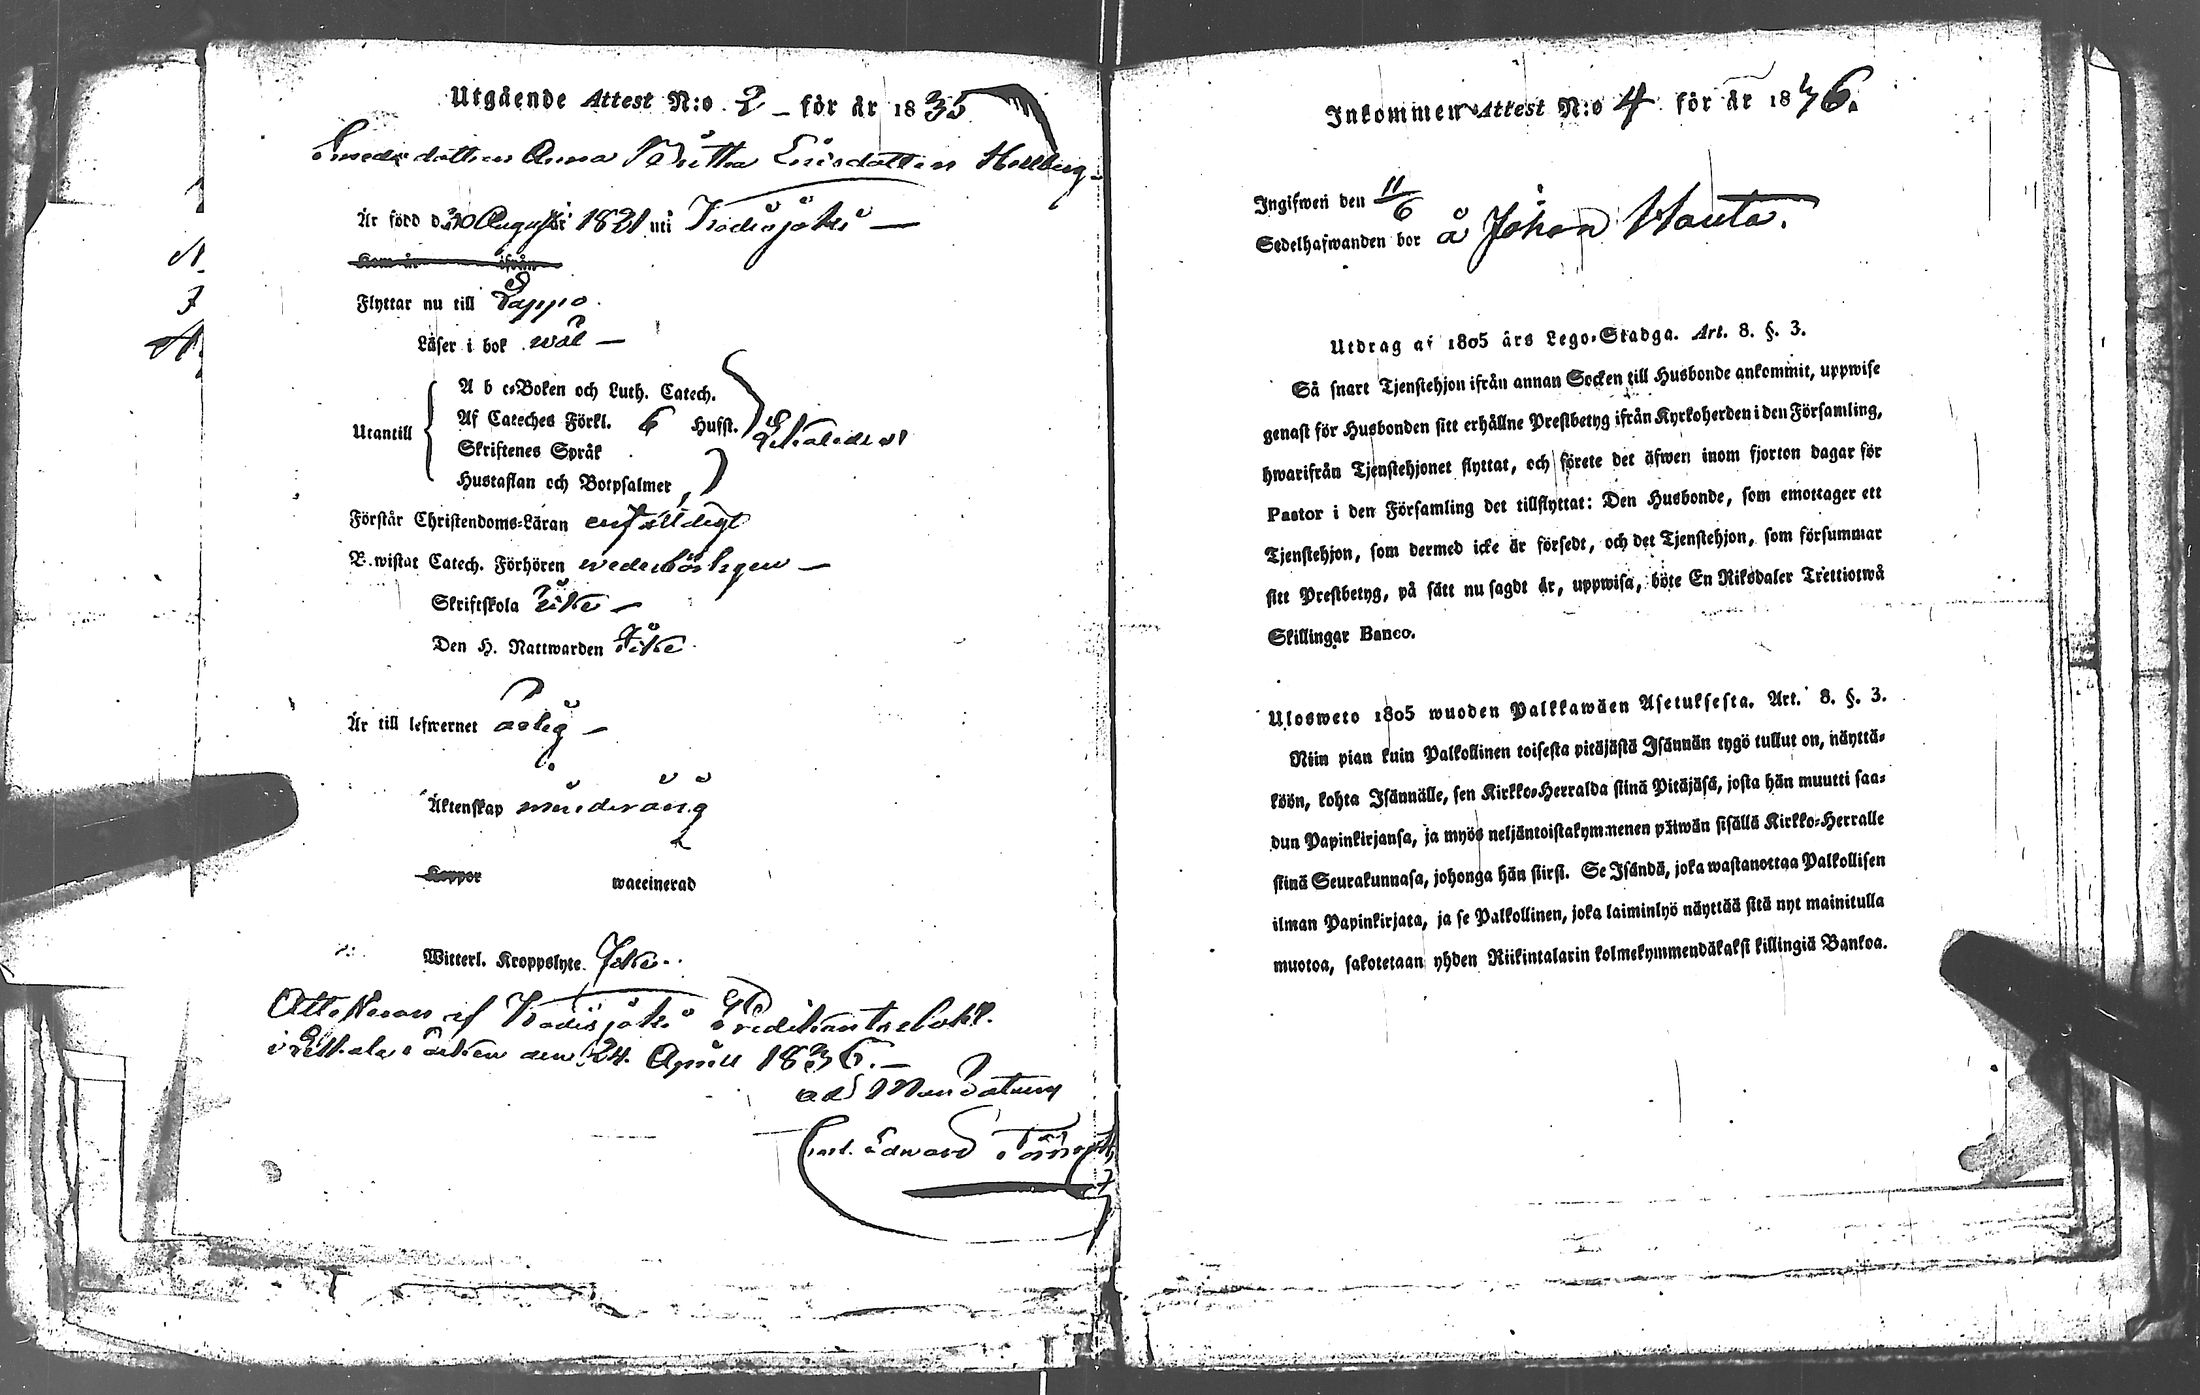 Utgående Attest N:o 2 – för år 1835
Smeds dottren Anna Britha Ericsdotter Hellberg
Är född d. 30 Augusti 1821 uti Kodisjoki –
Kom år ifrån
Flyttar nu till Lappo
Läser i bok wäl –
Utantill
A b c-Boken och Luth. Catech.
Af Cateches Förkl. 6 Hufst.
Skriftenes Språk
Hustaflan och Botpsalmer
Förstår Christendoms-Läran enfaldigt
B.wistat Catech. Förhören wederbörligen –
Skriftskola icke –
Den H. Nattwarden icke
Är till lefwernet ärlig –
Äktenskap minderårig
Koppor waccinerad
Witterl. Kroppslyte Icke
Attesteras af Kodisjoki Predikantsebohl
i Letala Socken den 24. April 1836. –
ad Mandatum
Carl Edward
Inkommen Attest N:o 4 för år 1836.
Ingifwen den 11/6
Sedelhafwanden bor å Johan Wanta.
Utdrag af 1805 års Lego-Stadga. Art. 8. §. 3.
Så snart Tjenstehjon ifrån annan Socken till Husbonde ankommit, uppwise
genast för Husbonden sitt erhållne Prestbetyg ifrån Kyrkoherden i den Församling,
hwarifrån Tjenstehjonet flyttat, och förete det äfwen inom fjorton dagar för
Pastor i den Församling det tillflyttat: Den Husbonde, som emottager ett
Tjenstehjon, som dermed icke är försedt, och det Tjenstehjon, som försummar
sitt Prestbetyg, på sätt nu sagdt är, uppwisa, böte En Riksdaler Trettiotwå
Skillingar Banco.
Ulosweto 1805 wuoden Palkkawäen Asetuksesta. Art. 8. §. 3.
Niin pian kuin Palkollinen toisesta pitäjästä Isännän tygö tullut on, näyttä-
köön, kohta Isännälle, sen Kirkko-Herralda siinä Pitäjäsä, josta hän muutti saa-
dun Papinkirjansa, ja myös neljäntoistakymmenen päiwän sisällä Kirkko-Herralle
siinä Seurakunnasa, johonga hän siirsi. Se Isändä, joka wastanottaa Palkollisen
ilman Papinkirjata, ja se Palkollinen, joka laiminlyö näyttää sitä nyt mainitulla
muotoa, sakotetaan yhden Riikintalarin kolmekymmendäkaksi killingiä Bankoa.